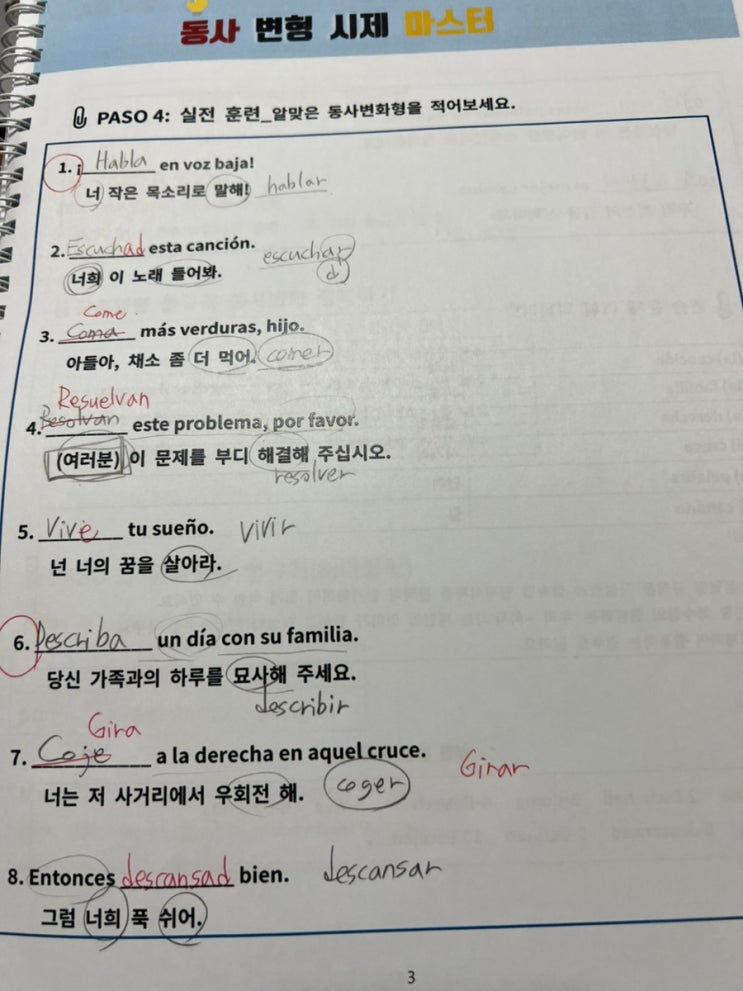 동사 변형 시제 마스터
PASO 4: 실전 훈련_알맞은 동사변화형을 적어보세요.
1. ¡ Habla en voz baja!
너 작은 목소리로 말해! hablar
2. Escuchad esta canción. escuchar
d
너희 이 노래 들어봐.
Come
3. Coma más verduras, hijo.
아들아, 채소 좀 더 먹어. comer
Resuelvan
4. Resolvan este problema, por favor.
(여러분) 이 문제를 부디 해결해 주십시오.
resolver
5. Vive tu sueño. vivir
넌 너의 꿈을 살아라.
6. Describa un día con su familia.
당신 가족과의 하루를 묘사해 주세요.
describir
Gira
7. Coje a la derecha en aquel cruce. Girar
너는 저 사거리에서 우회전 해. coger
8. Entonces desransad bien. descansar
그럼 너희 푹 쉬어.
3